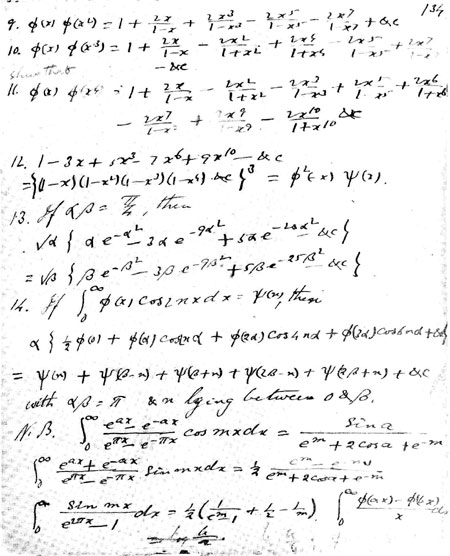 134
9. φ(x) φ(x²) = 1 + 2x/(1-x) + 2x³/(1-x³) - 2x⁵/(1-x⁵) - 2x⁷/(1-x⁷) + &c
10. φ(x) φ(x³) = 1 + 2x/(1-x) - 2x²/(1+x²) + 2x⁴/(1+x⁴) - 2x⁵/(1-x⁵) + 2x⁷/(1-x⁷)
- &c
Show that
11. φ(x) φ(x⁶) = 1 + 2x/(1-x) - 2x²/(1+x²) - 2x³/(1-x³) + 2x⁵/(1-x⁵) + 2x⁶/(1+x⁶)
- 2x⁷/(1-x⁷) + 2x⁹/(1-x⁹) - 2x¹⁰/(1+x¹⁰) &c
12. 1 - 3x + 5x³ - 7x⁶ + 9x¹⁰ - &c
= {(1-x)(1-x²)(1-x³)(1-x⁴) &c}³ = φ²(-x) ψ(x).
13. If αβ = π/4, then
√α { α e^(-α²) - 3α e^(-9α²) + 5α e^(-25α²) &c }
= √β { β e^(-β²) - 3β e^(-9β²) + 5β e^(-25β²) - &c }
14. If ∫₀^∞ φ(x) cos 2nx dx = ψ(n), then
α { ½ φ(0) + φ(α) cos 2nα + φ(2α) cos 4nα + φ(3α) cos 6nα + &c }
= ψ(n) + ψ(β-n) + ψ(β+n) + ψ(2β-n) + ψ(2β+n) + &c
with αβ = π & n lying between 0 & β.
N.B. ∫₀^∞ (e^(ax) - e^(-ax))/(e^(πx) - e^(-πx)) cos mx dx = sin a/(e^m + 2 cos a + e^(-m))
∫₀^∞ (e^(ax) + e^(-ax))/(e^(πx) - e^(-πx)) sin mx dx = ½ (e^m - e^(-m))/(e^m + 2 cos a + e^(-m))
∫₀^∞ sin mx/(e^(2πx) - 1) dx = ½ (1/(e^m - 1) + ½ - 1/m). ∫₀^∞ (φ(ax) - φ(bx))/x dx
= log b/a